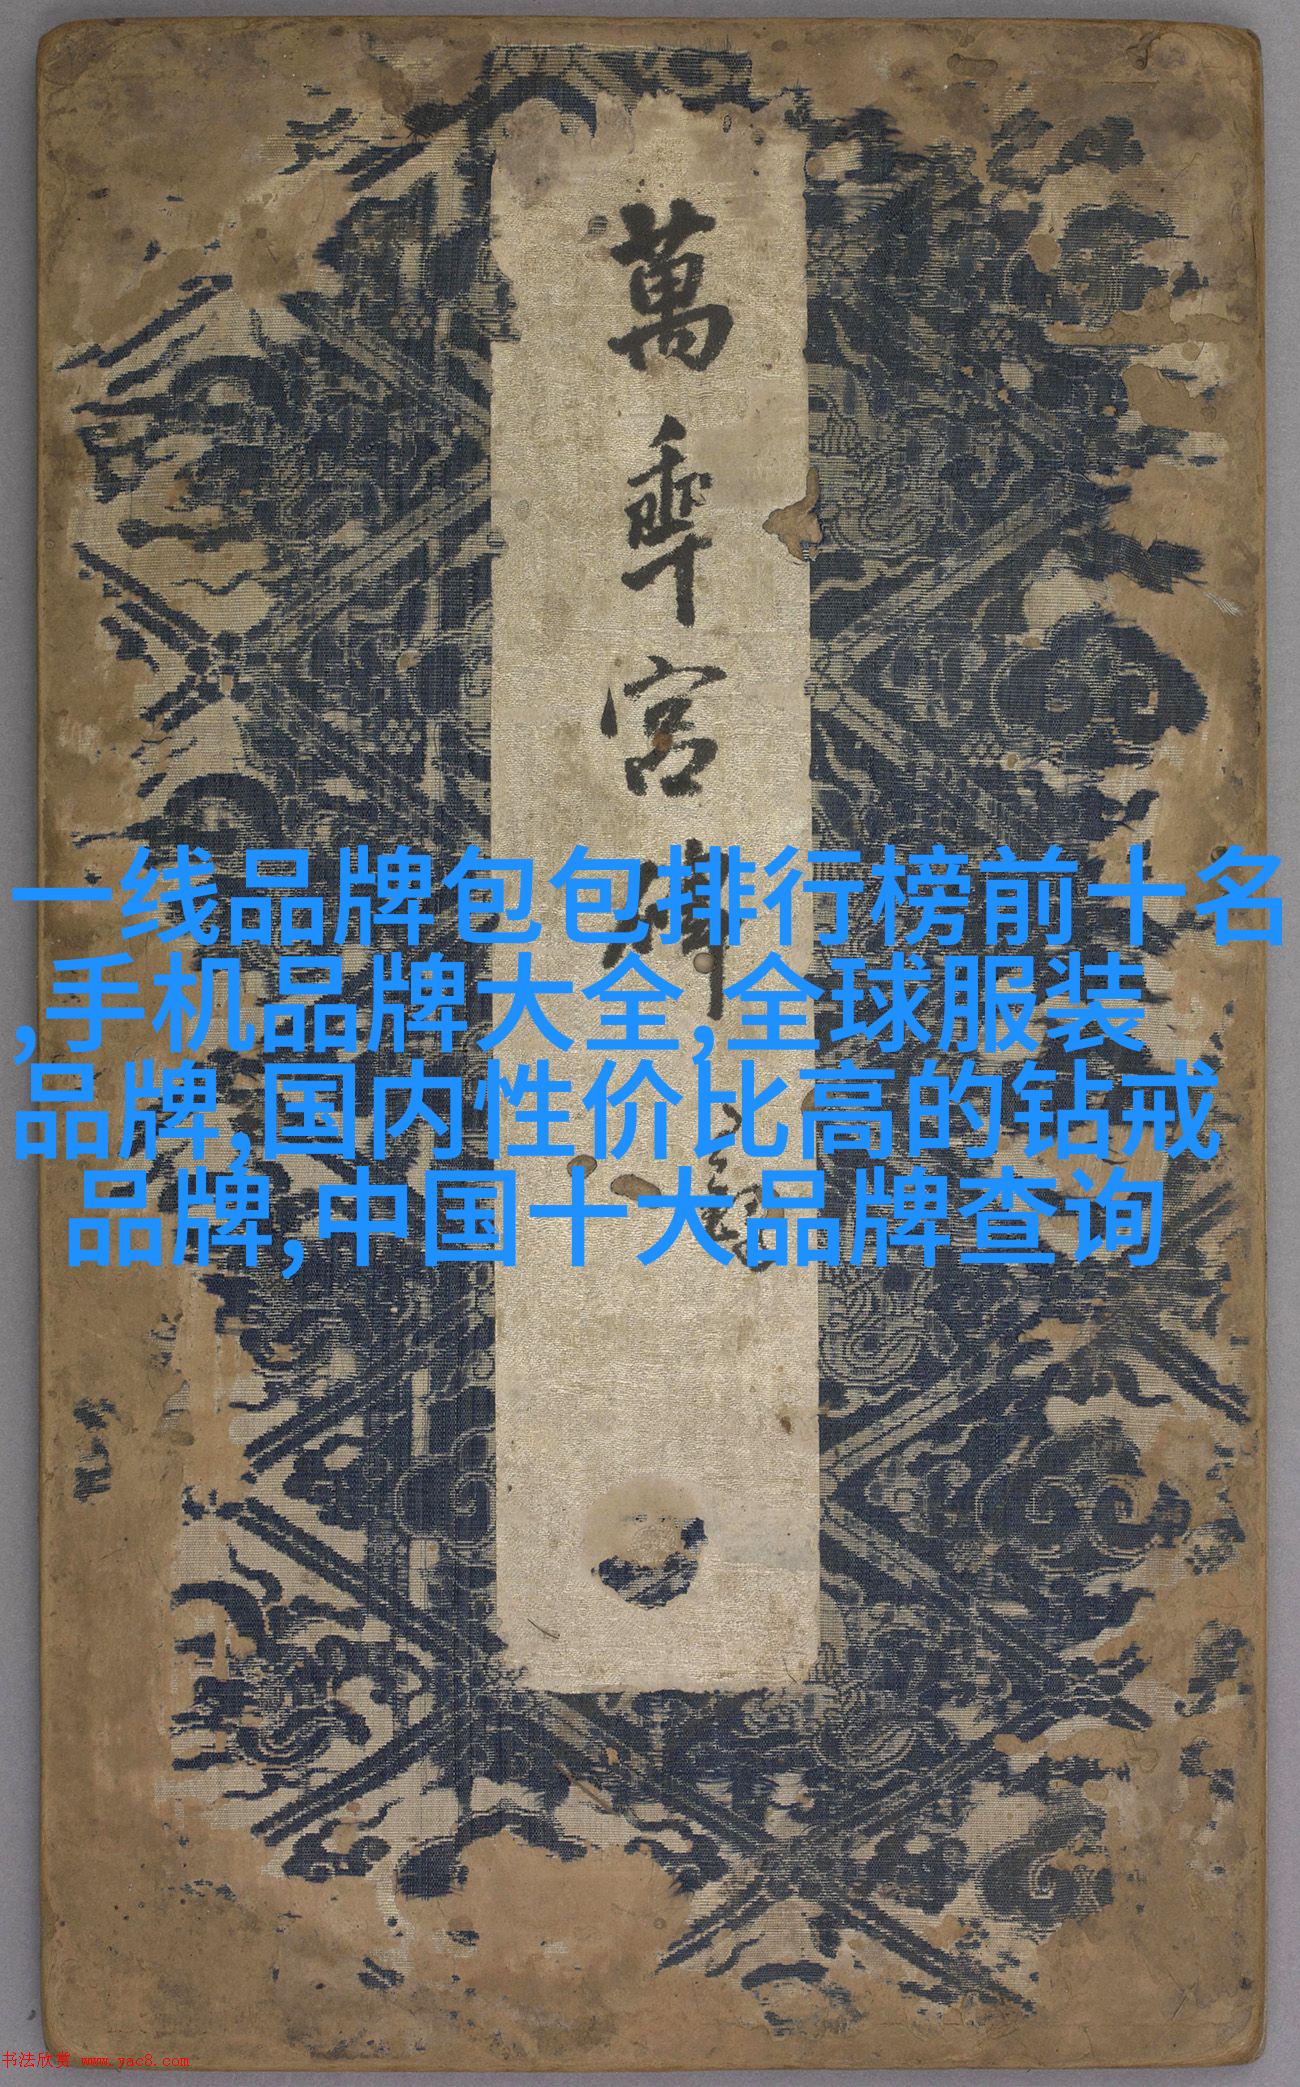 萬乘宮
一线品牌包包排行榜前十名
,手机品牌大全,全球服装
品牌,国内性价比高的钻戒
品牌,中国十大品牌查询
书法欣赏 www.yac8.com